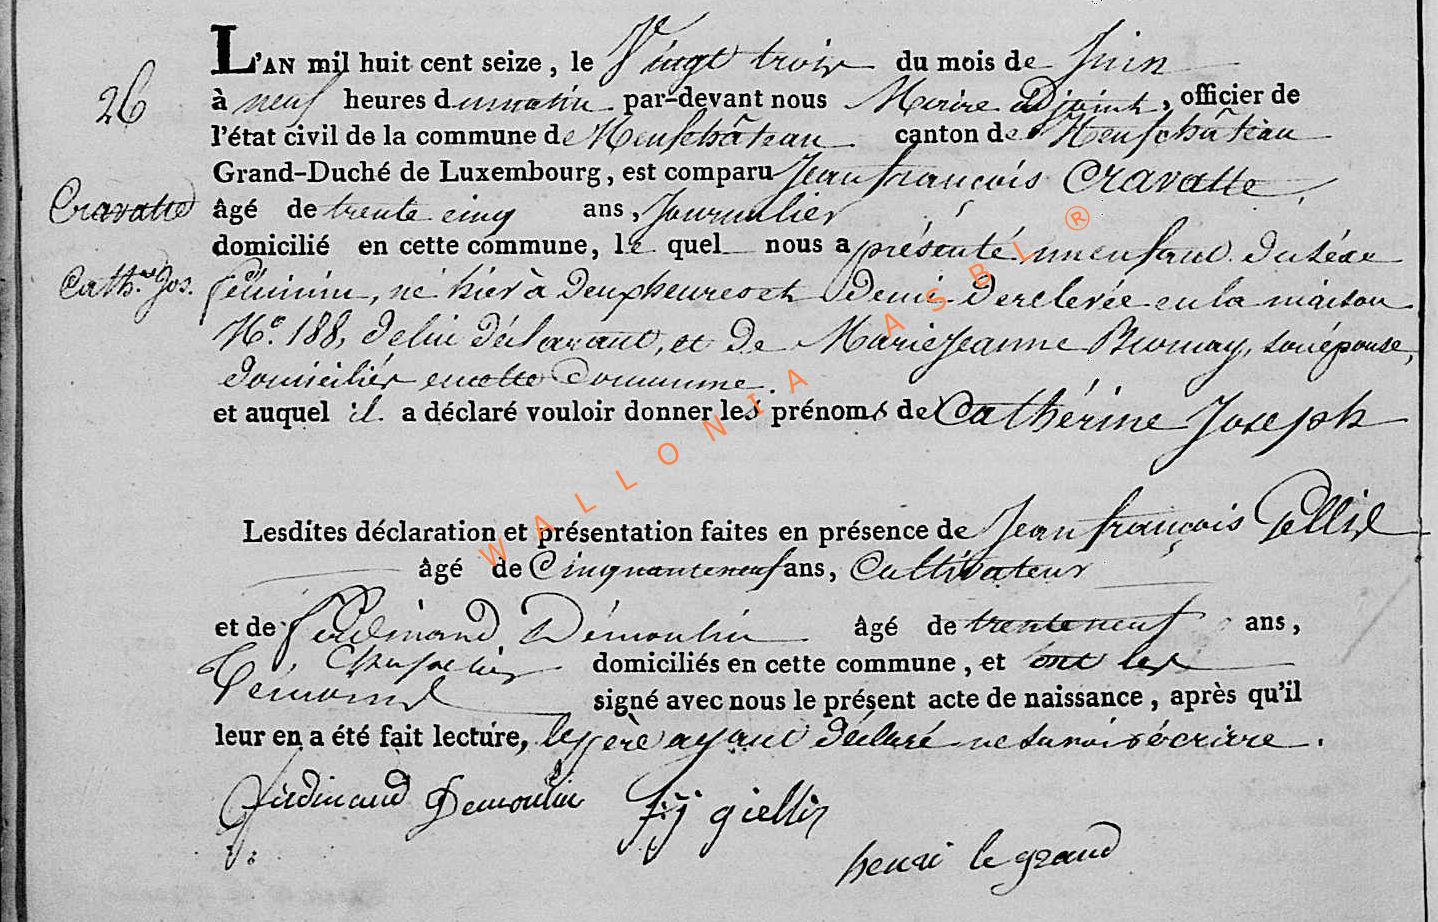 L'AN mil huit cent seize, le Vingt trois du mois de Juin
26
à neuf heures du matin par-devant nous Maire adjoint, officier de
l'état civil de la commune de Neufchâteau canton de Neufchâteau
Grand-Duché de Luxembourg, est comparu Jean françois Cravatte,
Cravatte
âgé de trente cinq ans, Journalier
domicilié en cette commune, le quel nous a présenté un enfant du séxe
Cath.ne Jos.
féminin, né hier à Deux heures et Demie de relevée en la maison
N.o 188, de lui déclarant, et de Marie Jeanne son épouse,
domiciliés en cette Commune.
et auquel il a déclaré vouloir donner les prénoms de Cathérine Joseph
Lesdites déclaration et présentation faites en présence de Jean françois Gellis
âgé de Cinquante neuf ans, Cultivateur
et de ferdinand Démoulin âgé de trente neuf ans,
Chapelier domiciliés en cette commune, et ont les
Témoins signé avec nous le présent acte de naissance, après qu'il
leur en a été fait lecture, le père ayant déclaré ne savoir écrire.
ferdinand Demoulin
henri le grand
WALLONIA ASBL ®